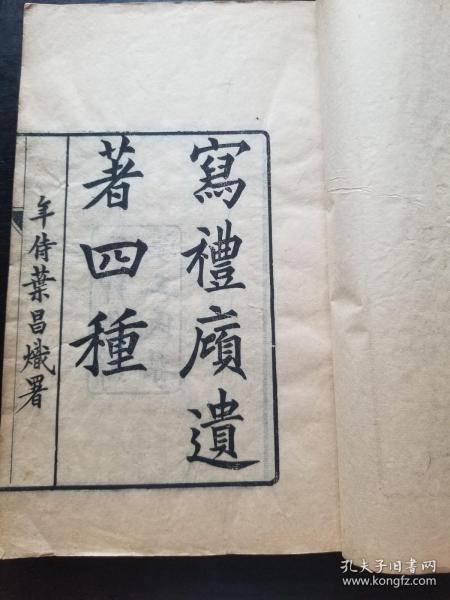 寫禮廎遺
著四種
年侍葉昌熾署
孔夫子旧书网
www.kongfz.com